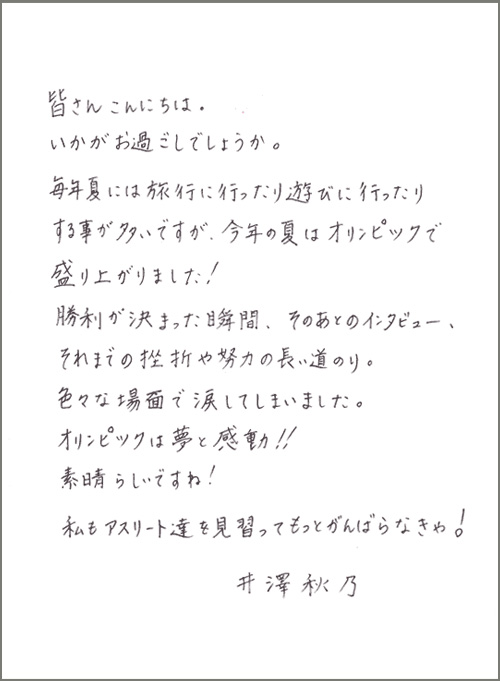 皆さんこんにちは。
いかがお過ごしでしょうか。
毎年夏には旅行に行ったり遊びに行ったり
する事が多いですが、今年の夏はオリンピックで
盛り上がりました!
勝利が決まった瞬間、そのあとのインタビュー、
それまでの挫折や努力の長い道のり。
色々な場面で涙してしまいました。
オリンピックは夢と感動!!
素晴らしいですね!
私もアスリート達を見習ってもっとがんばらなきゃ!
井澤秋乃